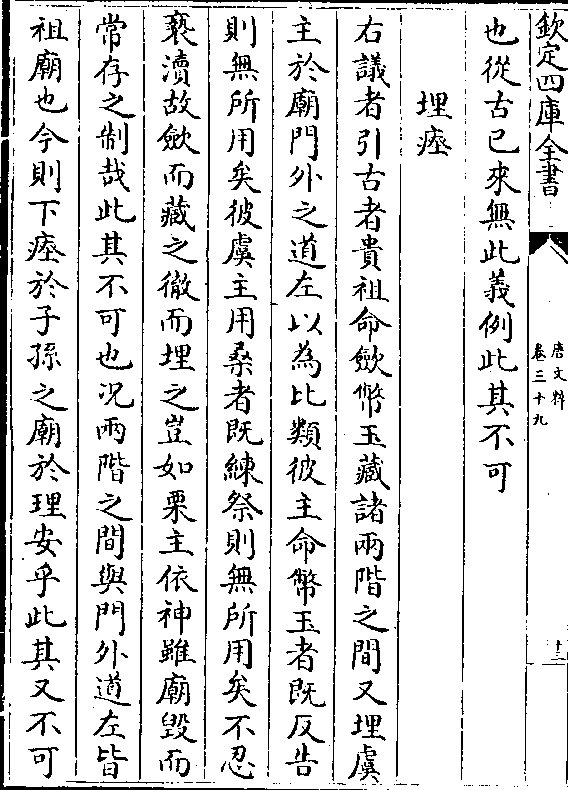 欽定四庫全書
唐文粹
卷三十九
十三
也從古已來無此義例此其不可
埋瘞
右議者引古者貴祖命斂幣玉藏諸兩階之間又埋虞
主於廟門外之道左以為比類彼主命幣玉者既反告
則無所用矣彼虞主用桑者既練祭則無所用矣不忍
褻瀆故斂而藏之徹而埋之豈如栗主依神雖廟毀而
常存之制哉此其不可也况兩階之間與門外道左皆
祖廟也今則下瘞於子孫之廟於理安乎此其又不可